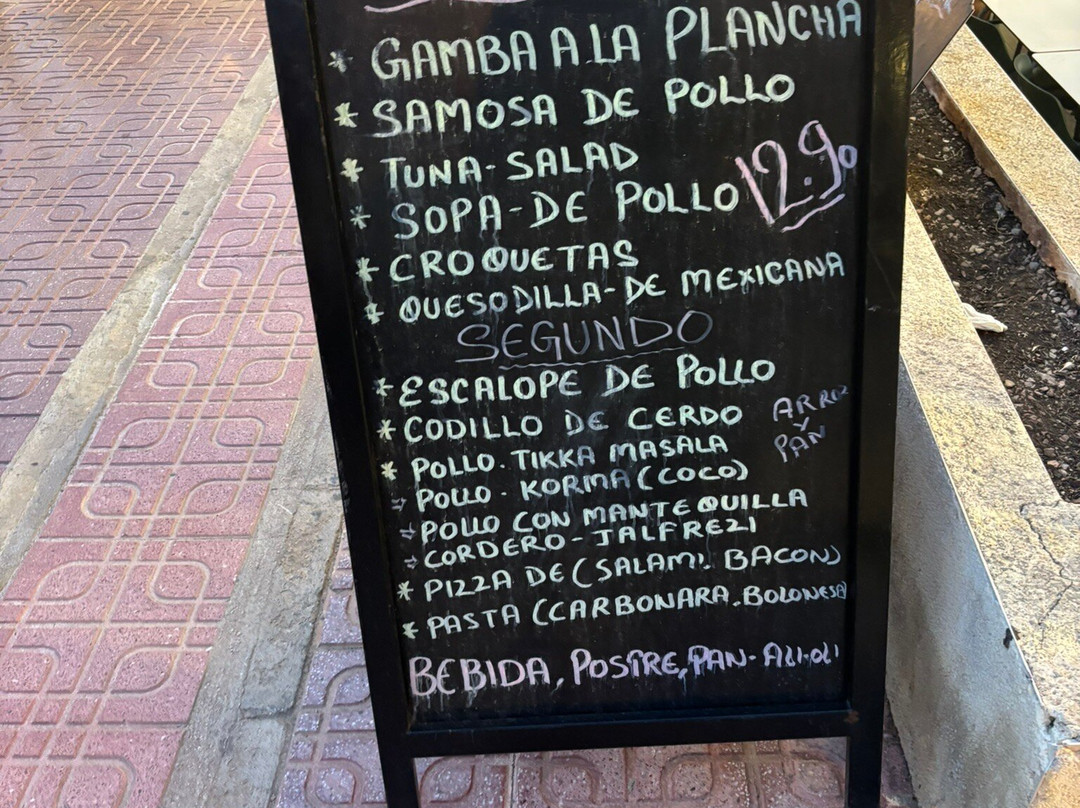 * GAMBA A.LA PLANCHA
* SAMOSA DE POLLO
* TUNA-SALAD
12.90
* SOPA-DE POLLO
* CROQUETAS
* QUESODILLA-DE MEXICANA
SEGUNDO
* ESCALOPE DE POLLO
* CODILLO DE CERDO
ARROZ
Y
PAN
* POLLO.TIKKA MASALA
→ POLLO. KORMA (COCO)
⇒ POLLO CON MANTEQUILLA
⇒ CORDERO-JALFREZI
* PIZZA DE (SALAMI. BACON)
* PASTA (CARBONARA.BOLONESA)
BEBIDA, POSTRE, PAN-ALI-OLI